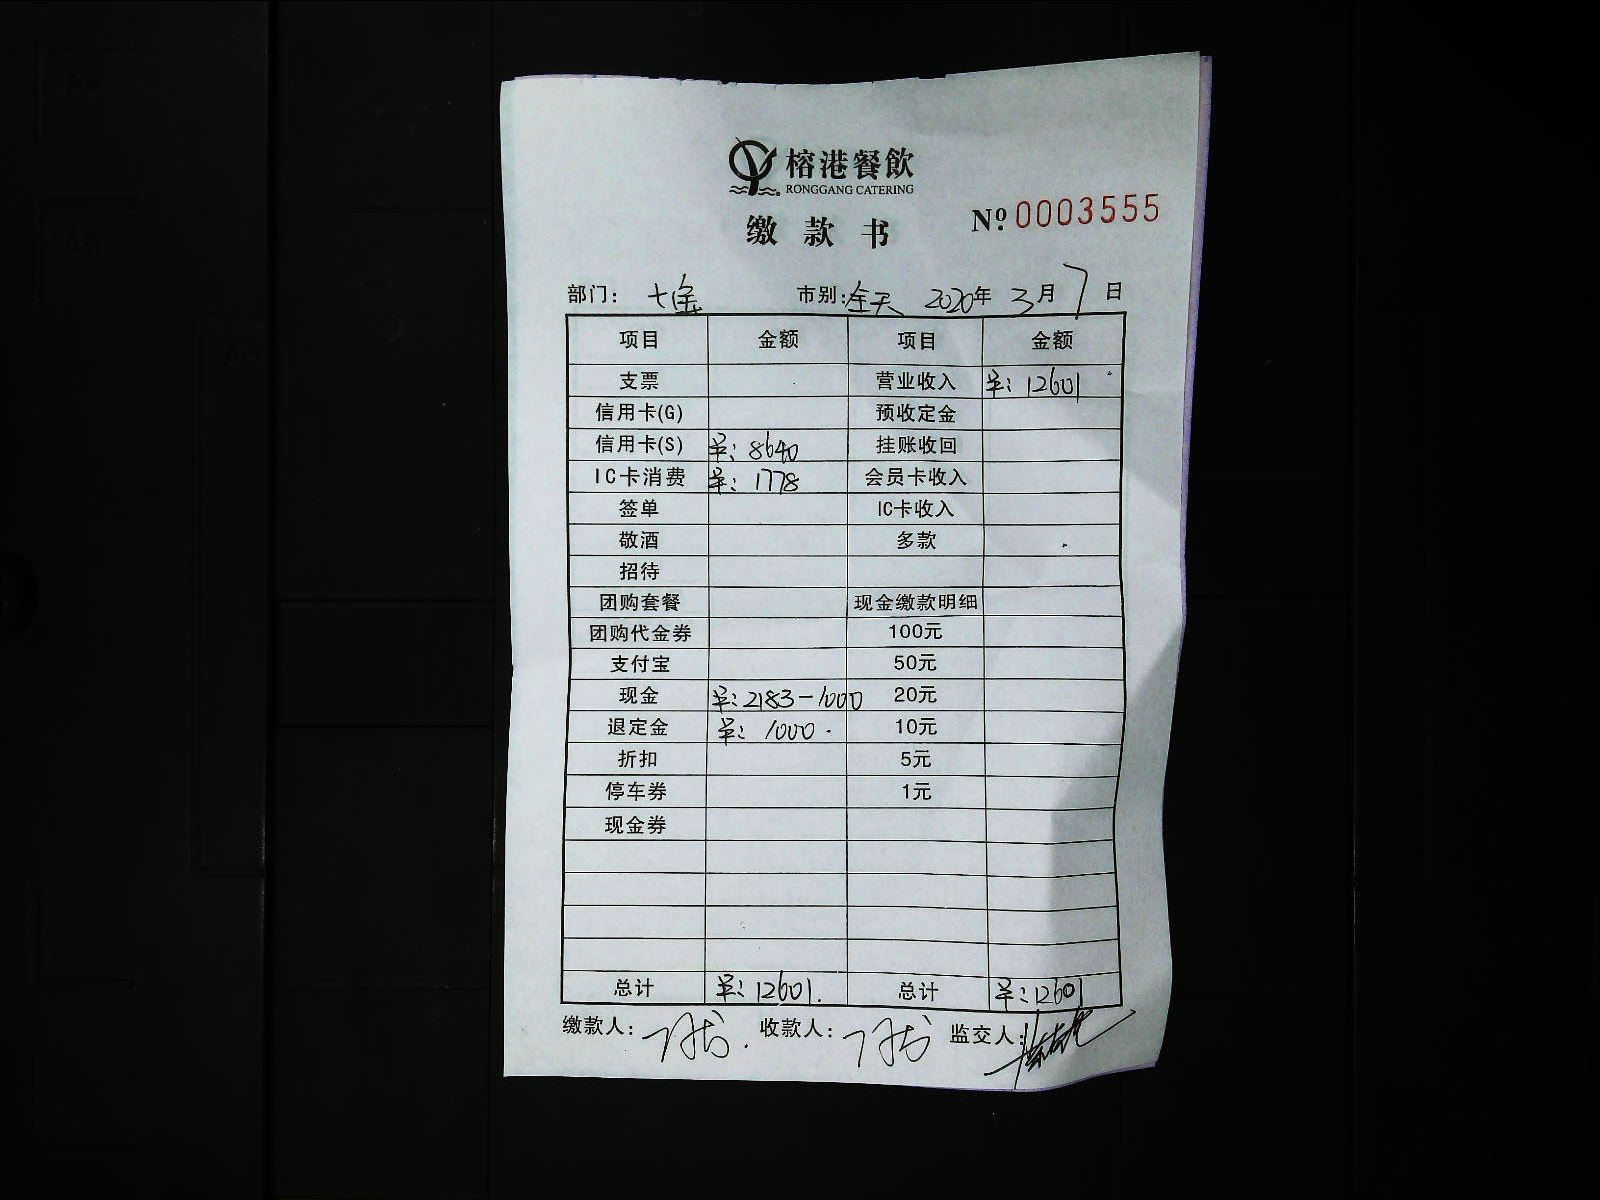 榕港餐飲
RONGGANG CATERING
缴款书 № 0003555
部门: 七金 市别: 全天 2020年 3月 7日
项目 金额 项目 金额
支票 营业收入 ¥: 12601
信用卡(G) 预收定金
信用卡(S) ¥: 8640 挂账收回
IC卡消费 ¥: 1778 会员卡收入
签单 IC卡收入
敬酒 多款
招待
团购套餐 现金缴款明细
团购代金券 100元
支付宝 50元
现金 ¥: 2183-1000 20元
退定金 ¥: 1000. 10元
折扣 5元
停车券 1元
现金券
总计 ¥: 12601. 总计 ¥: 12601
缴款人: 收款人: 监交人: